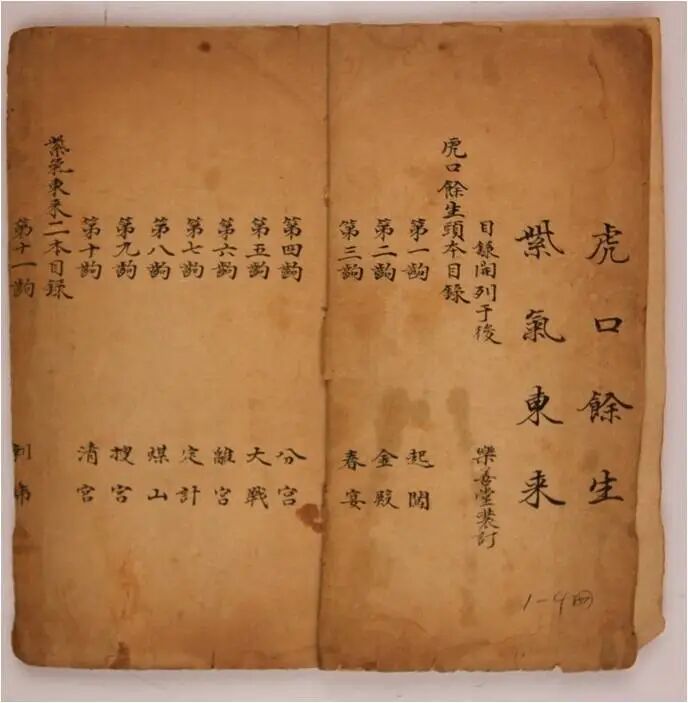 虎口餘生
紫氣東来
目録開列于後 樂善堂装訂
虎口餘生頭本目録
第一齣 起闖
第二齣 金殿
第三齣 春宴
第四齣 分宮
第五齣 大戰
第六齣 離宮
第七齣 定計
第八齣 煤山
第九齣 搜宮
第十齣 清宮
紫氣東来二本目録
第十一齣
1-4冊